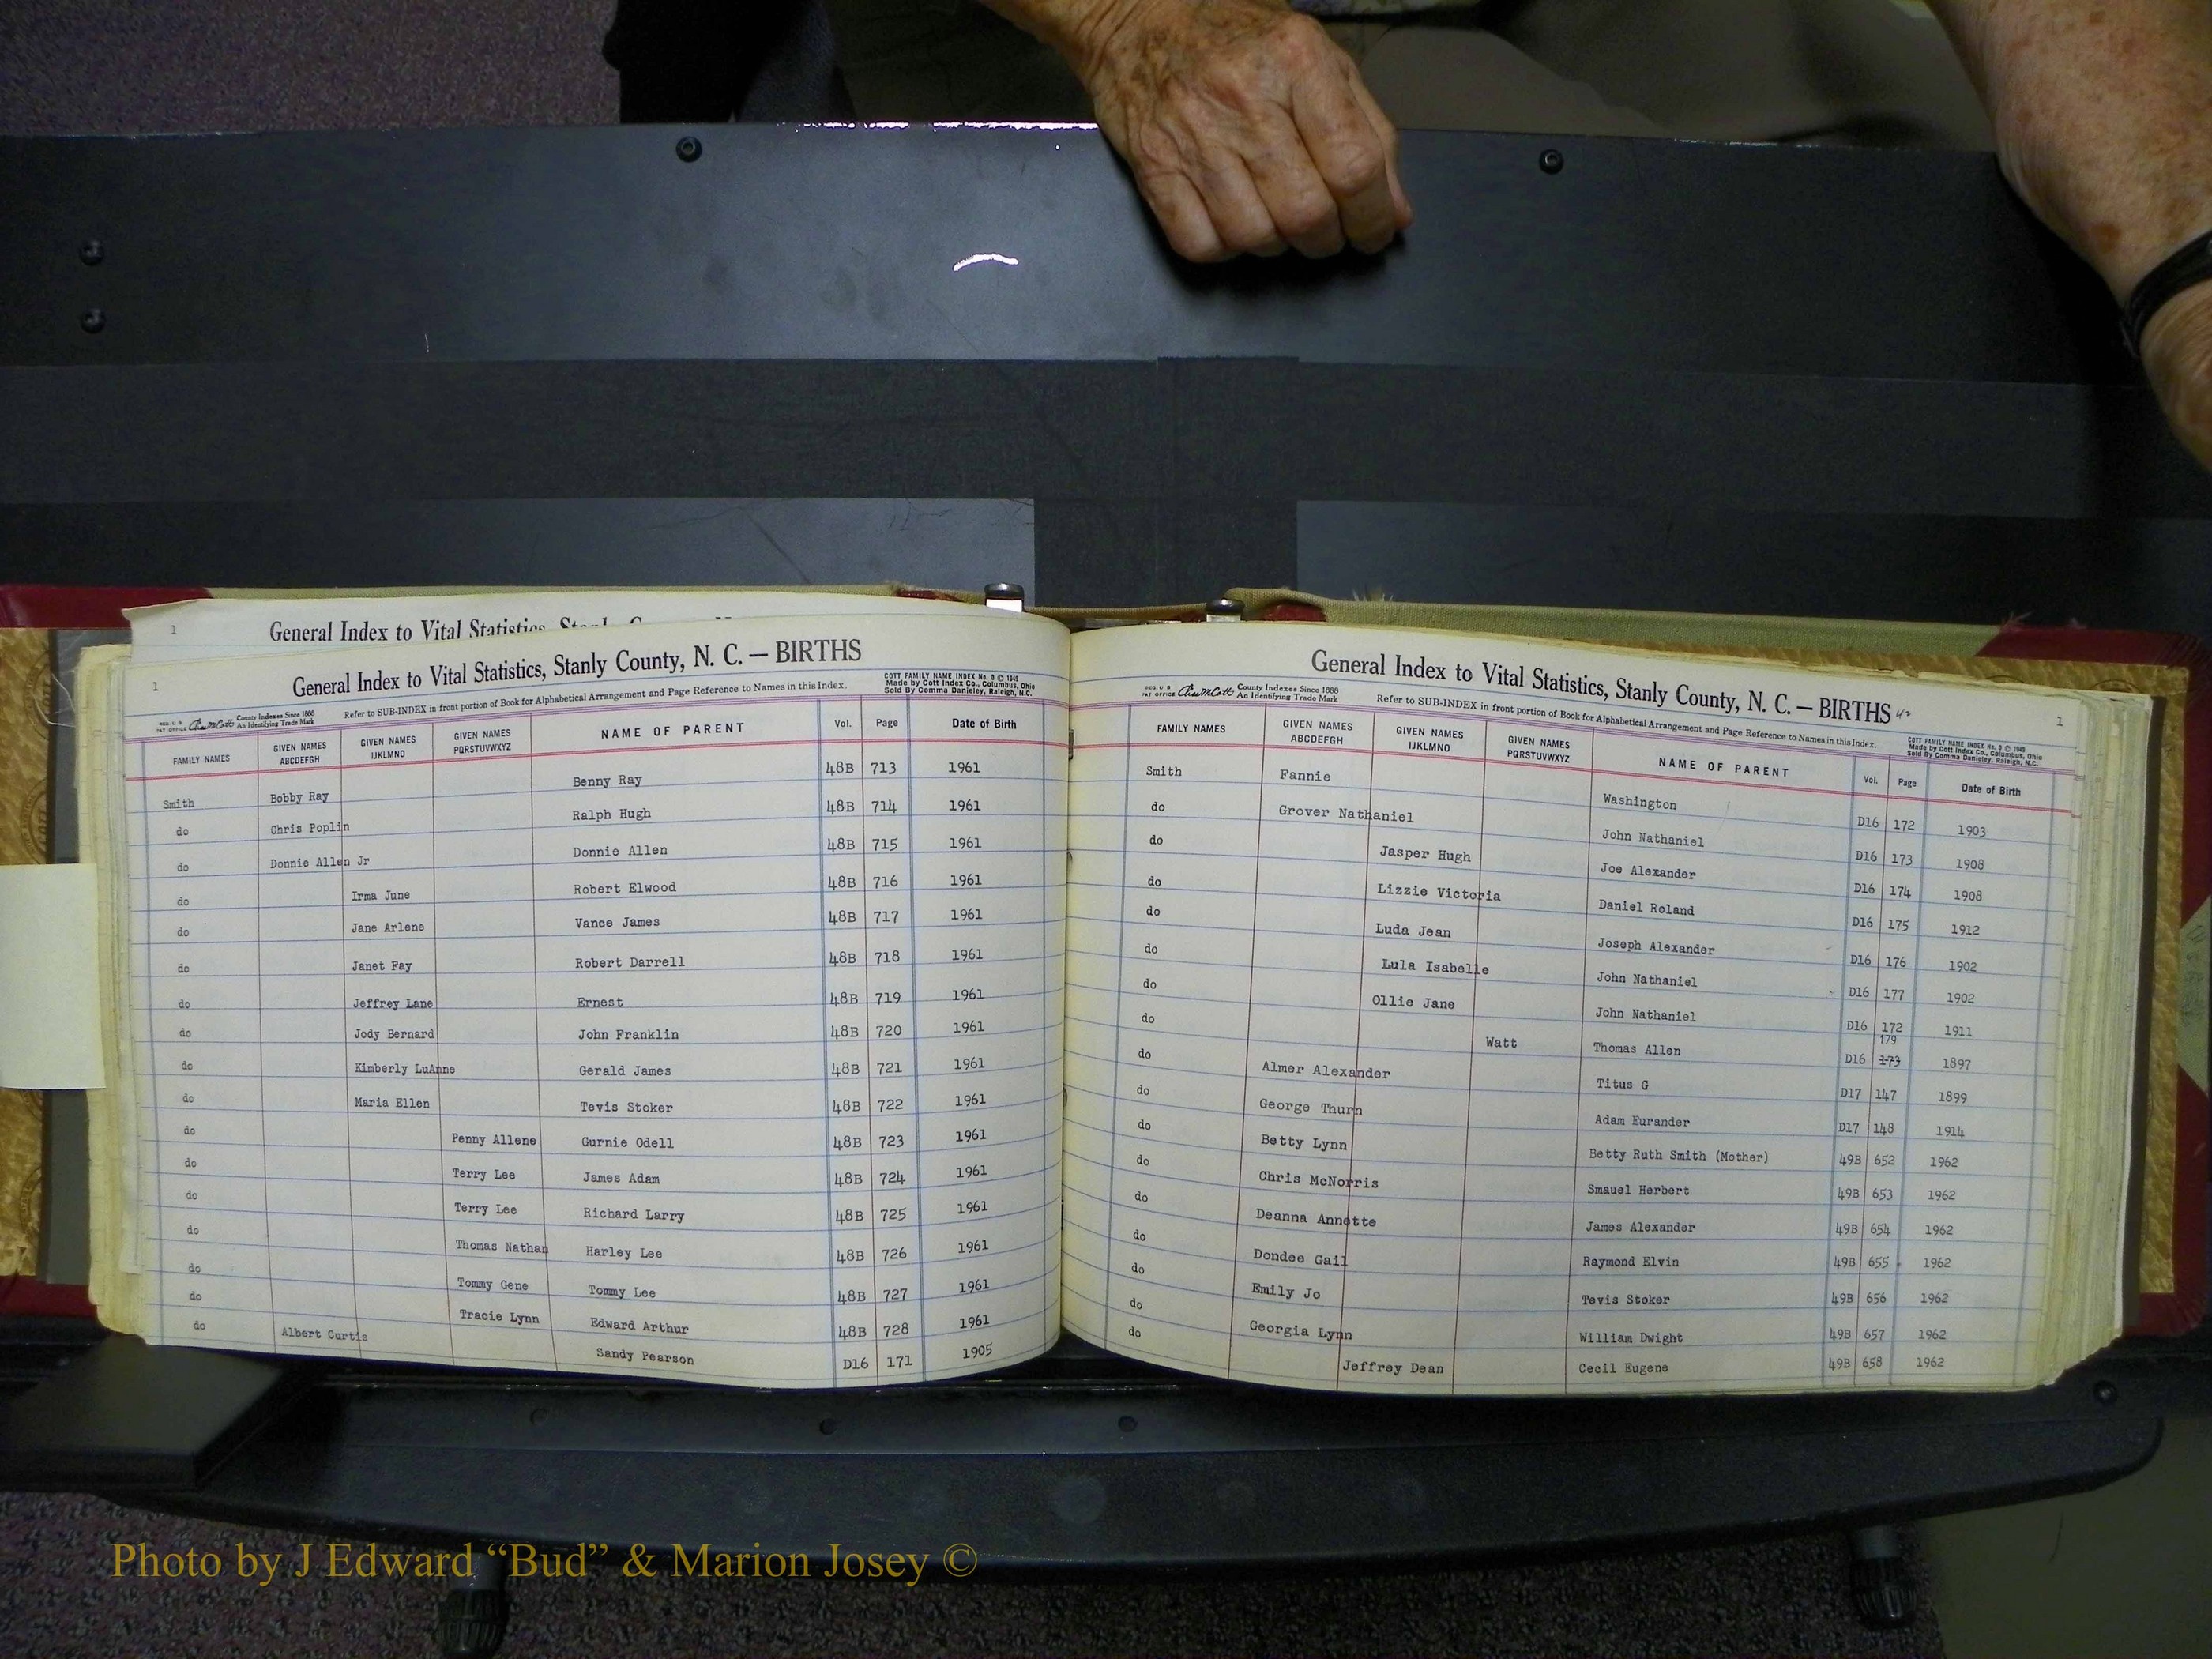 1 General Index to Vital Statistics, Stanly County, N
1 General Index to Vital Statistics, Stanly County, N. C. — BIRTHS
REG. U S PAT OFFICE County Indexes Since 1888 An Identifying Trade Mark
Refer to SUB-INDEX in front portion of Book for Alphabetical Arrangement and Page Reference to Names in this Index.
COTT FAMILY NAME INDEX No. 9 © 1949
Made by Cott Index Co., Columbus, Ohio
Sold By Comma Danieley, Raleigh, N.C.
FAMILY NAMES GIVEN NAMES ABCDEFGH GIVEN NAMES IJKLMNO GIVEN NAMES PQRSTUVWXYZ NAME OF PARENT Vol. Page Date of Birth
Smith Bobby Ray Benny Ray 48B 713 1961
do Chris Poplin Ralph Hugh 48B 714 1961
do Donnie Allen Jr Donnie Allen 48B 715 1961
do Irma June Robert Elwood 48B 716 1961
do Jane Arlene Vance James 48B 717 1961
do Janet Fay Robert Darrell 48B 718 1961
do Jeffrey Lane Ernest 48B 719 1961
do Jody Bernard John Franklin 48B 720 1961
do Kimberly LuAnne Gerald James 48B 721 1961
do Maria Ellen Tevis Stoker 48B 722 1961
do Penny Allene Gurnie Odell 48B 723 1961
do Terry Lee James Adam 48B 724 1961
do Terry Lee Richard Larry 48B 725 1961
do Thomas Nathan Harley Lee 48B 726 1961
do Tommy Gene Tommy Lee 48B 727 1961
do Tracie Lynn Edward Arthur 48B 728 1961
do Albert Curtis Sandy Pearson D16 171 1905
General Index to Vital Statistics, Stanly County, N. C. — BIRTHS 1
REG. U S PAT OFFICE County Indexes Since 1888 An Identifying Trade Mark
Refer to SUB-INDEX in front portion of Book for Alphabetical Arrangement and Page Reference to Names in this Index.
COTT FAMILY NAME INDEX No. 9 © 1949
Made by Cott Index Co., Columbus, Ohio
Sold By Comma Danieley, Raleigh, N.C.
FAMILY NAMES GIVEN NAMES ABCDEFGH GIVEN NAMES IJKLMNO GIVEN NAMES PQRSTUVWXYZ NAME OF PARENT Vol. Page Date of Birth
Smith Fannie Washington D16 172 1903
do Grover Nathaniel John Nathaniel D16 173 1908
do Jasper Hugh Joe Alexander D16 174 1908
do Lizzie Victoria Daniel Roland D16 175 1912
do Luda Jean Joseph Alexander D16 176 1902
do Lula Isabelle John Nathaniel D16 177 1902
do Ollie Jane John Nathaniel D16 172 1911
do Watt Thomas Allen D16 179 173 1897
do Almer Alexander Titus G D17 147 1899
do George Thurn Adam Eurander D17 148 1914
do Betty Lynn Betty Ruth Smith (Mother) 49B 652 1962
do Chris McNorris Smauel Herbert 49B 653 1962
do Deanna Annette James Alexander 49B 654 1962
do Dondee Gail Raymond Elvin 49B 655 1962
do Emily Jo Tevis Stoker 49B 656 1962
do Georgia Lynn William Dwight 49B 657 1962
do Jeffrey Dean Cecil Eugene 49B 658 1962
Photo by J Edward “Bud” & Marion Josey ©